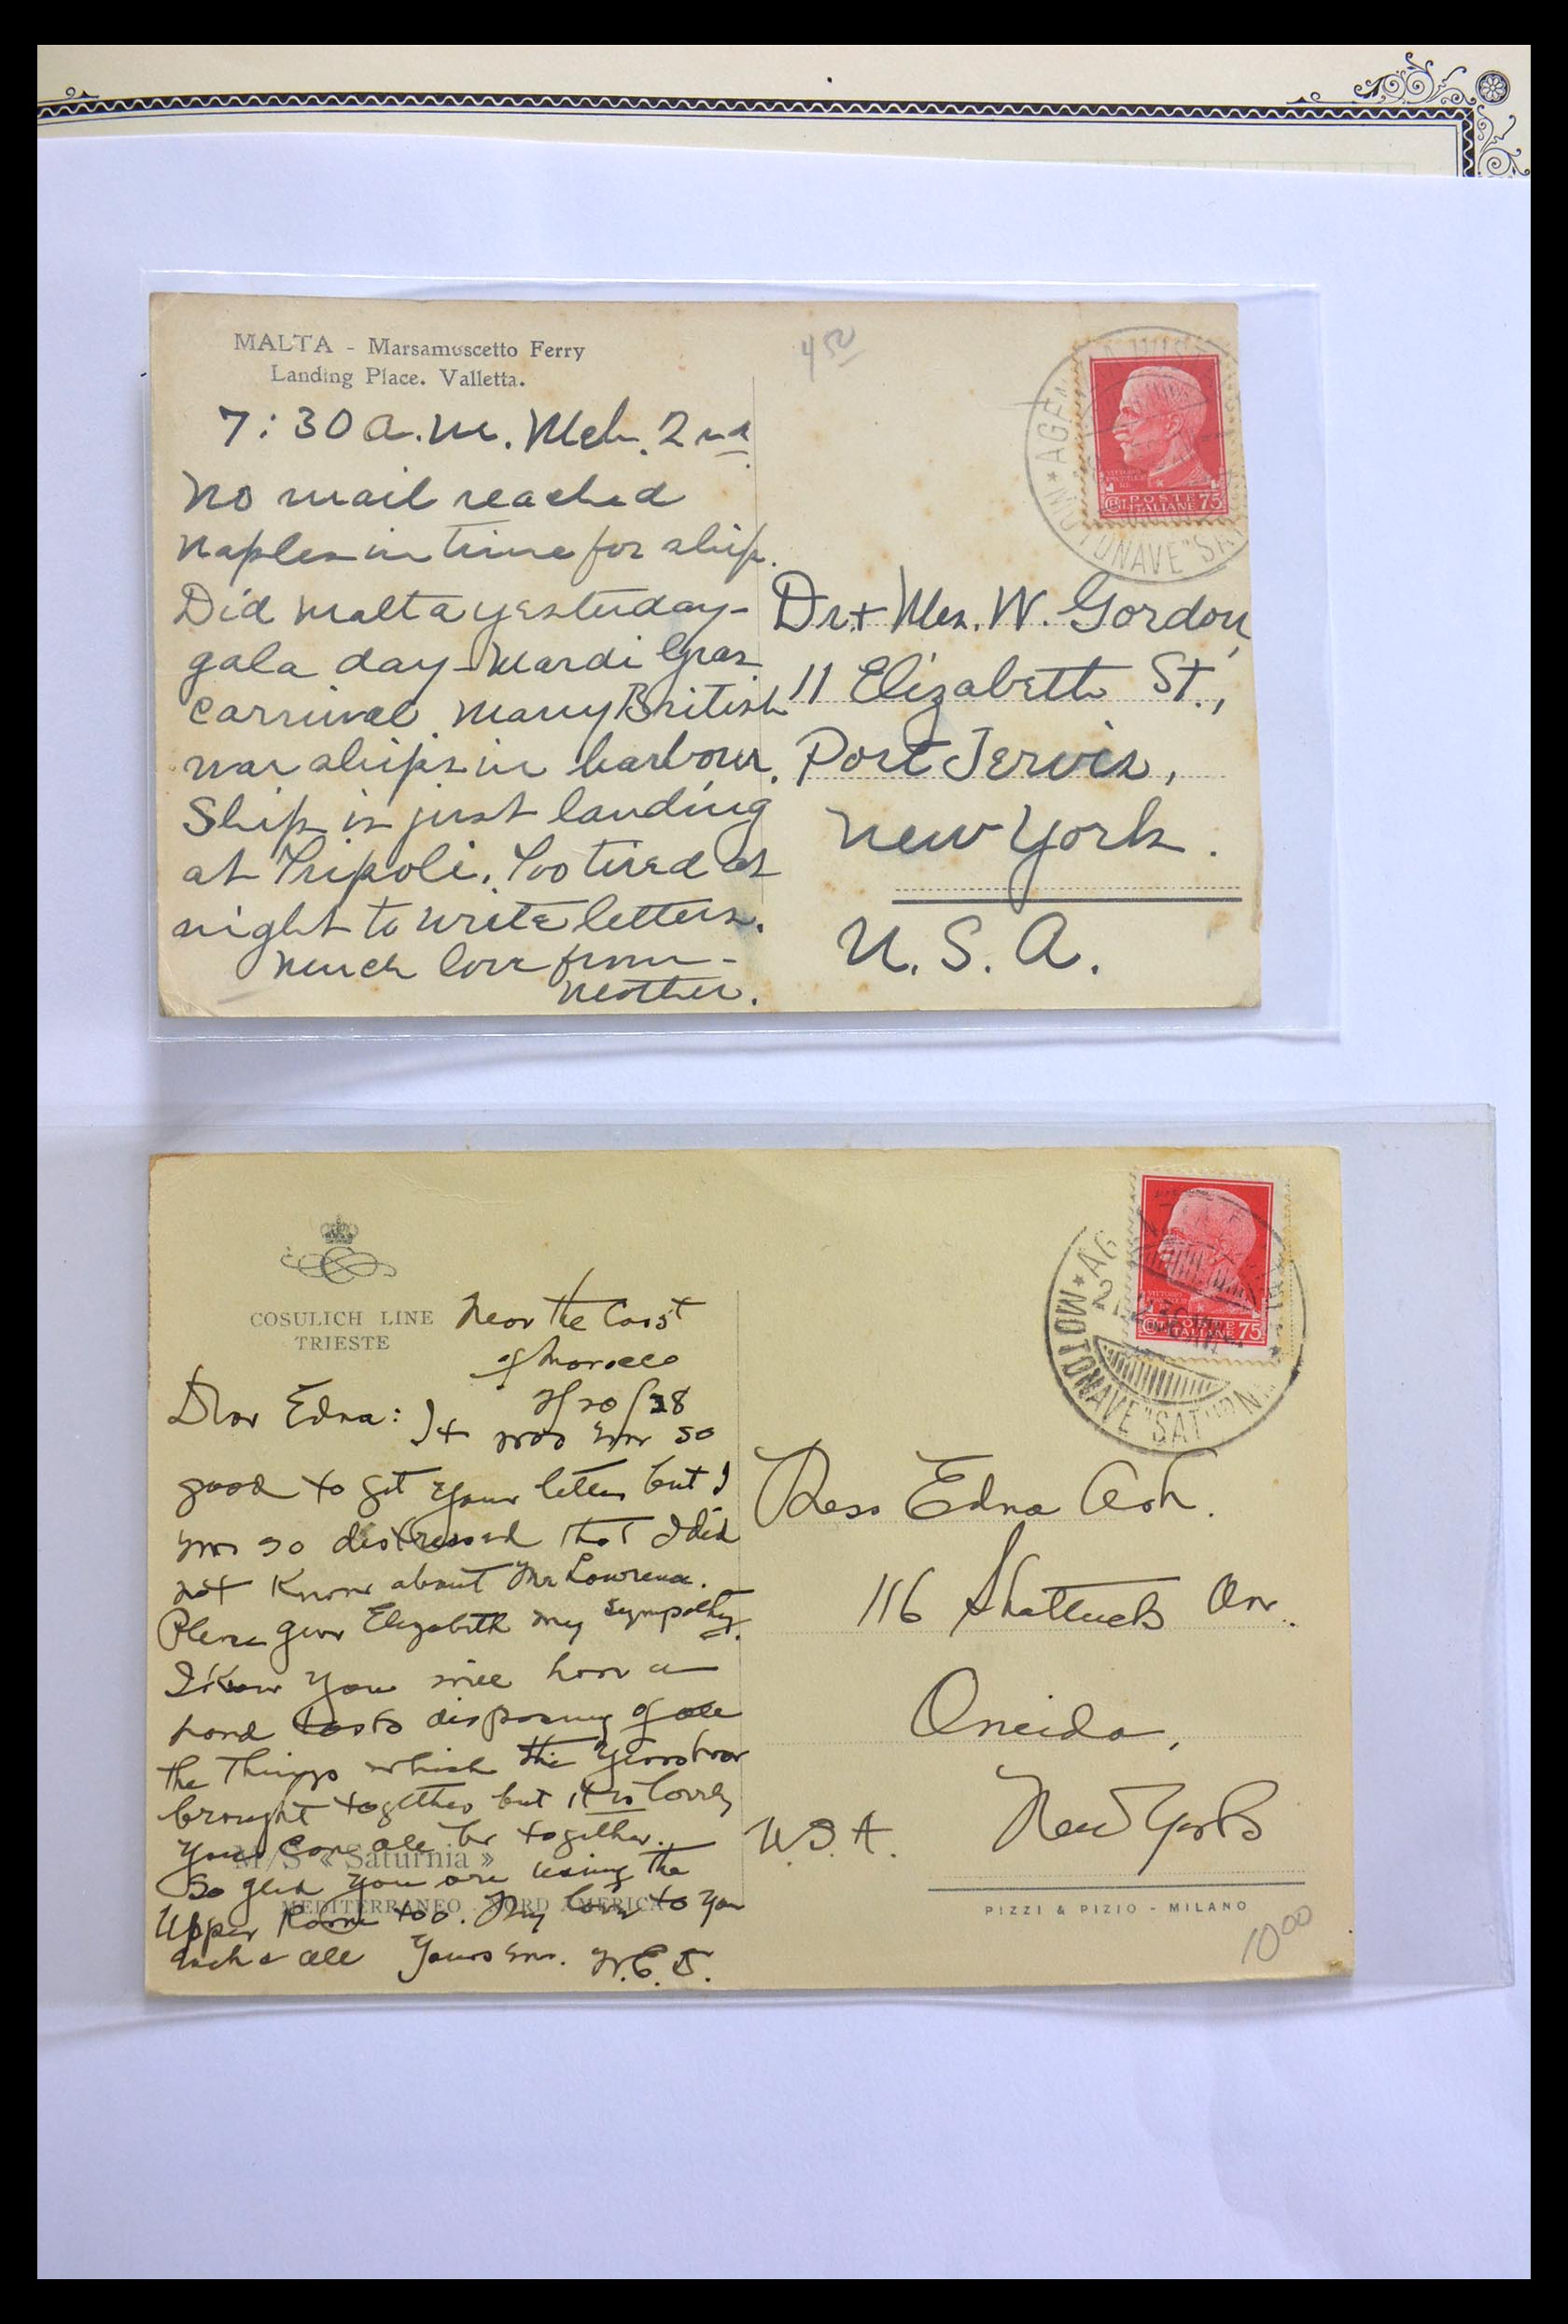 MALTA - Marsamuscetto Ferry
Landing Place. Valletta.
4 50
7:30 a.m. Mch. 2nd
No mail reached
Naples in time for ship.
Did Malta yesterday—
gala day—Mardi Gras
carnival. Many British
war ships in harbour.
Ship is just landing
at Tripoli. Too tired at
night to write letters.
Much love from—
Mother.
POSTE
ITALIANE 75
AGEN
MOTONAVE "SAT
Dr + Mrs. W. Gordon,
11 Elizabeth St.,
Port Jervis,
New York.
U. S. A.
COSULICH LINE
TRIESTE
Near the Coast
of Morocco
2/20/38
Dear Edna: It was so
good to get your letter but I
was so distressed that I did
not know about Mr Lawrence.
Please give Elizabeth my sympathy.
I know you will have a
hard task disposing of all
the things which the years have
brought together but it is lovely
you can all be together.
So glad you are using the
Upper Room too. My love to you
each & all Yours W.E.
M/S « Saturnia »
MEDITERRANEO NORD AMERICA
POSTE
ITALIANE 75
AG
MOTONAVE "SATURN
Miss Edna Ash.
116 Shattuck
Oneida,
New York
U.S.A.
PIZZI & PIZIO - MILANO
10 00